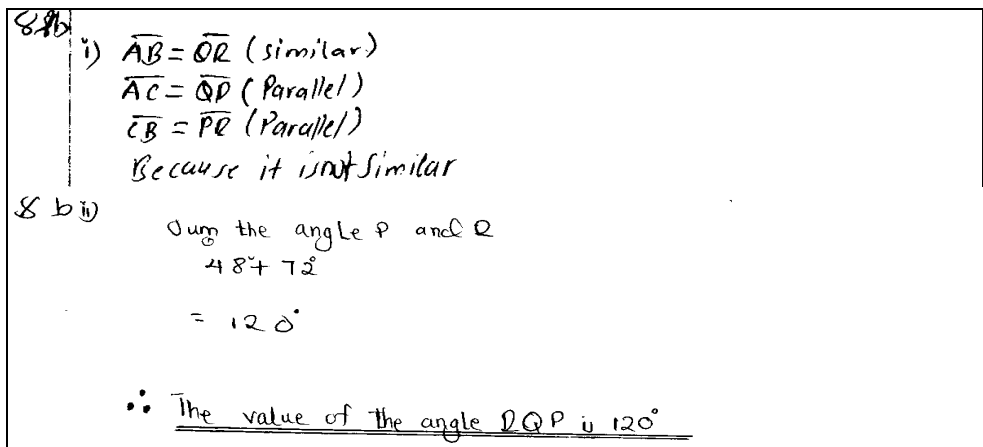 8b
i) AB = QR (similar)
AC = QP (Parallel)
CB = PR (Parallel)
Because it is not similar
8 b ii)
Sum the angle P and R
48° + 72°
= 120°
∴ The value of the angle RQP is 120°